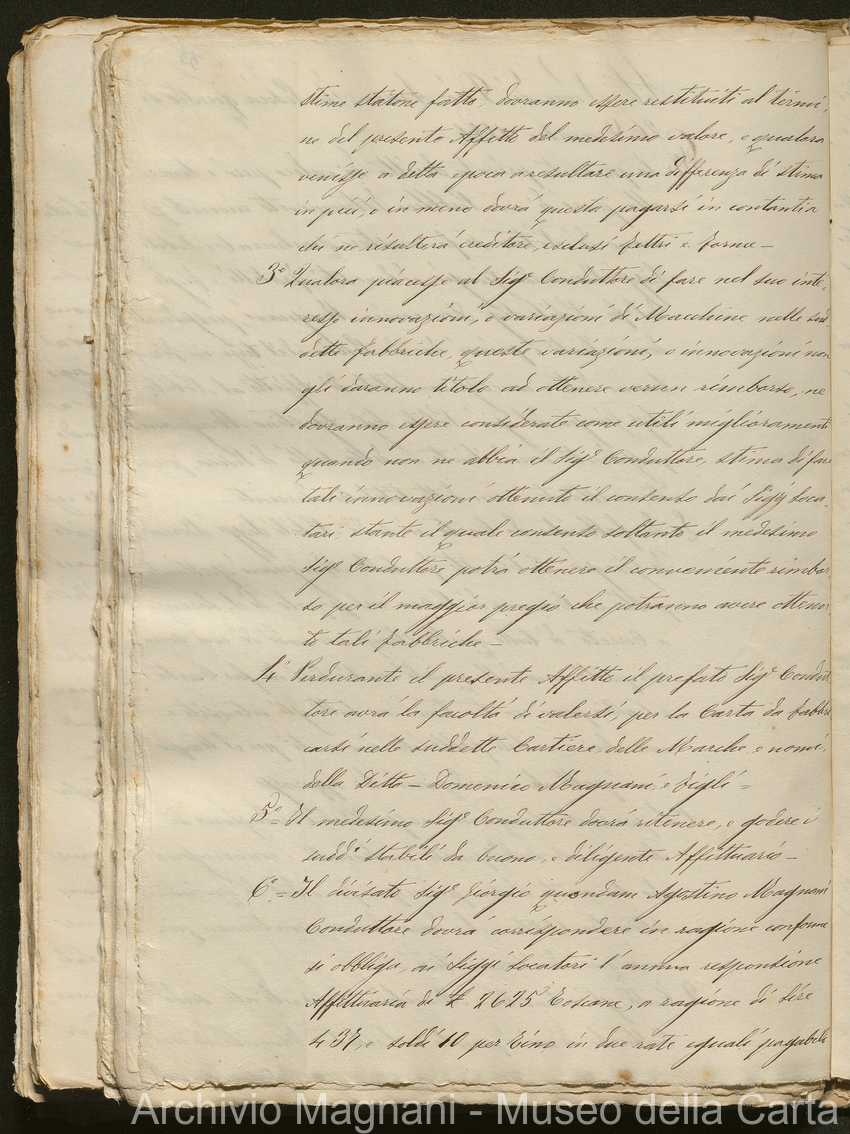 stime statone fatto dovranno essere restituiti al termi=
ne del presente Affitto del medesimo valore, e qualora
venisse a detta epoca a resultare una differenza di stima
in più, o in meno dovrà questa pagarsi in contanti a
chi ne risulterà creditore, esclusi feltri e forme –
3º Qualora piacesse al Sigr Conduttore di fare nel suo inte=
resse innovazioni, o variazioni di Macchine nelle sud=
dette fabbriche, queste variazioni, o innovazioni non
gli daranno titolo ad ottenere verun rimborso, ne
dovranno essere considerate come utili miglioramenti
quando non ne abbia il Sigr Conduttore, prima di fare
tali innovazioni ottenuto il consenso dai Siggi Loca=
tari, stante il quale consenso soltanto il medesimo
Sigr Conduttore potrà ottenere il conveniente rimbor=
so per il maggior pregio che potranno avere ottenu=
to tali fabbriche –
4º Perdurante il presente Affitto il prefato Sigr Condut=
tore avrà la facoltà di valersi, per la Carta da fabbri=
carsi nelle suddette Cartiere, delle Marche, e nomi
della Ditta – Domenico Magnani, e Figli =
5º = Il medesimo Sigr Conduttore dovrà ritenere, e godere i
sudd.i stabili da buono, e diligente Affittuario –
6º = Il divisato Sigr Giorgio quondam Agostino Magnani
Conduttore dovrà corrispondere in ragione conforme
si obbliga, ai Siggi Locatori l'annua responsione
Affittuaria di £ 2625 Toscane, a ragione di Lire
437, e soldi 10 per Tino, in due rate eguali pagabili
Archivio Magnani - Museo della Carta